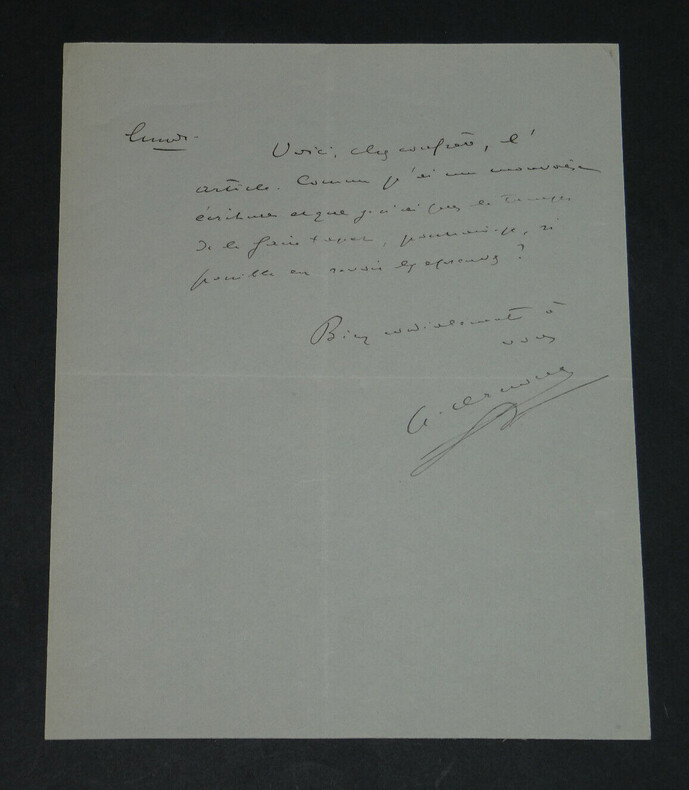 Lundi.
Voici, cher confrère, l'
article. Comme j'ai une mauvaise
écriture et que je n'ai pas le temps
de le faire taper, pourrai-je, si
possible en revoir les épreuves ?
Bien cordialement à
vous